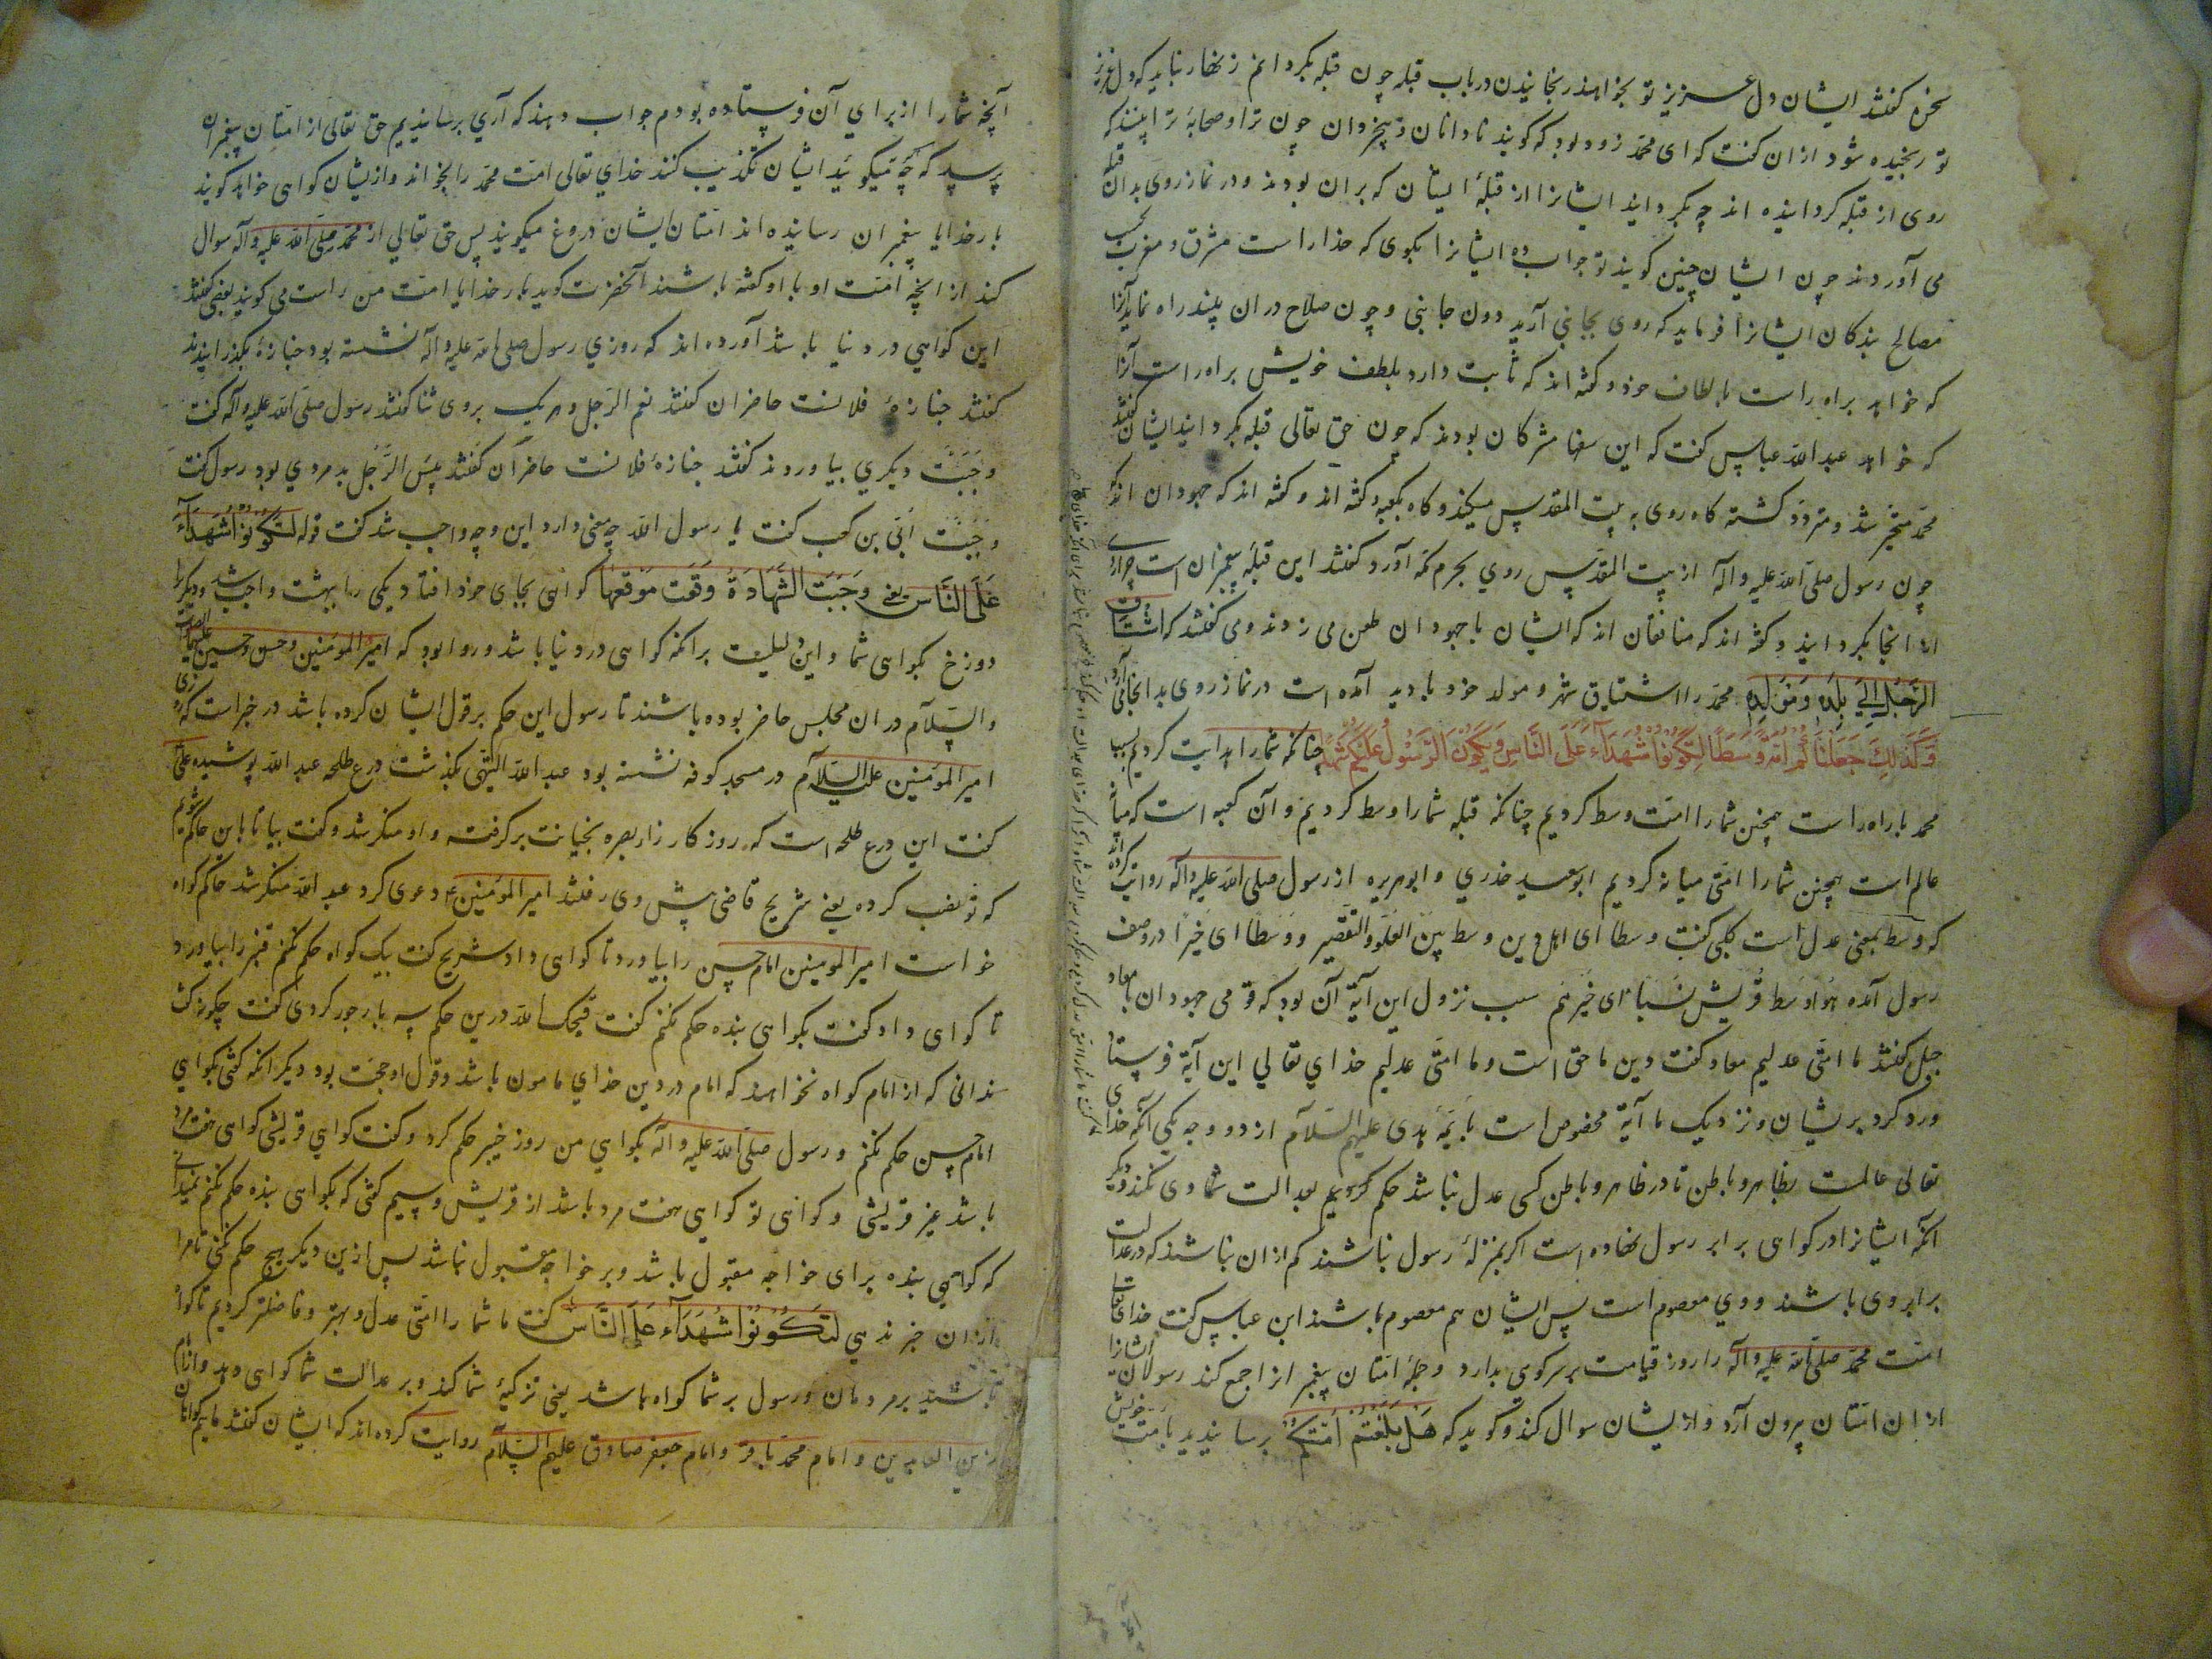 سخره گفتند ایشان دل عزیز تو بخواهند رنجانیدن در باب قبله چون قبله بگردانم زنهار نباید که دل عزیز
تو رنجیده شود از ان گفت که ای محمد زود بود که گویند نادانان و بیخردان چون ترا و صحابهٔ ترا بینند که
روی از قبله گردانیده اند چه بگردانید ایشانرا از قبلهٔ ایشان که بران بودند و در نماز روی بدان قبله
می آوردند چون ایشان چنین گویند تو جواب ده ایشانرا بگوی که خدا راست مشرق و مغرب بحسب
مصالح بندگان ایشانرا فرماید که روی بجانبی آرید دون جانبی و چون صلاح در ان بیند راه نماید آنرا
که خواهد براه راست بالطاف خود و گفته اند که ثابت دارد بلطف خویش براه راست آنرا
که خواهد عبد الله عباس گفت که این سفها مشرکان بودند که چون حق تعالی قبله بگردانید ایشان گفتند
محمد متحیر شد و متردد گشته گاه روی به بیت المقدس میکند و گاه بکعبه و گفته اند و گفته اند که جهودان اند که
چون رسول صلی الله علیه و آله از بیت المقدس روی بحرم مکه آورد گفتند این قبلهٔ پیغمبران است چرا روی
از انجا بگردانید و گفته اند که منافقان اند که ایشان با جهودان طعن می زدند و می گفتند که اشتاق
الرَّجُلُ اِلی بَلَدِهِ وَمَوْلِدِهِ محمد را اشتیاق شهر و مولد خود بادید آمده است در نماز روی بدانجا می آرد
وَكَذٰلِكَ جَعَلْنَاكُمْ اُمَّةً وَسَطًا لِتَكُونُوا شُهَدَآءَ عَلَى النَّاسِ وَيَكُونَ الرَّسُولُ عَلَيْكُمْ شَهِيدًا چنانکه شما را هدایت کردیم بسبب
محمد با راه راست همچنین شما را امت وسط کردیم چنانکه قبله شما را وسط کردیم و آن کعبه است که میان
عالم است همچنین شما را امتی میانه کردیم ابو سعید خدری و ابو هریره از رسول صلی الله علیه و آله روایت کرده اند
که وسط بمعنی عدل است کلبی گفت وسطا ای اهل دین وسط بین الغلو و التقصیر و وسطا ای خیرا در وصف
رسول آمده هو اوسط قریش نسبا ای خیرهم سبب نزول این آیة آن بود که قومی جهودان با معاذ
جبل گفتند ما امتی عدلیم معاذ گفت دین ما حق است و ما امتی عدلیم خدای تعالی این آیة فرستاد
ورد کرد بریشان و نزدیک ما آیة مخصوص است بایمهٔ هدی علیهم السلام از دو وجه یکی آنکه خدای
تعالی عالمست بظاهر و باطن تا در ظاهر و باطن کسی عدل نباشد حکم بعدالت شما وی نکند و دیگر
آنکه ایشانرا در گواهی برابر رسول نهاده است اگر بمنزلهٔ رسول نباشند کم از ان نباشند که در عدالت
برابر وی باشند و وی معصوم است پس ایشان هم معصوم باشند ابن عباس گفت خدای تعالی
امت محمد صلی الله علیه و آله را روز قیامت بر سر کوی بدارد و جملهٔ امتان پیغمبرانرا جمع کند رسولان ایشانرا
از ان امتان بیرون آرد و از یشان سوال کند و گوید که هَلْ بَلَّغْتُمْ اُمَّتَكُمْ برسانیدید بامت خویش
آنچه شما را از برای آن فرستاده بودم جواب دهند که آری برسانیدیم حق تعالی از امتان پیغمبران
پرسد که چه میگویید ایشان تکذیب کنند خدای تعالی امت محمد را بخواند و از یشان گواهی خواهد گویند
بار خدایا پیغمبران رسانیده اند امتان ایشان دروغ میگویند پس حق تعالی از محمد صلی الله علیه و آله سوال
کند از انچه امت او با او گفته باشند آنحضرت گوید بار خدایا امت من راست می گویند بعضی گفتند
این گواهی در دنیا باشد آورده اند که روزی رسول صلی الله علیه و آله نشسته بود جنازهٔ بگذرانیدند
گفتند جنازهٔ فلانست حاضران گفتند نعم الرجل و هر یک بر وی ثنا گفتند رسول صلی الله علیه و آله گفت
وَجَبَتْ دیگری بیاوردند گفتند جنازهٔ فلانست حاضران گفتند بِئسَ الرَّجُل بد مردی بود رسول گفت
وَجَبَتْ اُبَیّ بن کعب گفت یا رسول الله چه معنی دارد این وچه واجب شد گفت قوله لِتَكُونُوا شُهَدَآءَ
عَلَى النَّاسِ یعنی وَجَبَتِ الشَّهَادَةُ وَقَعَت مَوْقِعَها گواهی بجای خود افتاد یکی را بهشت واجب شد و دیگر را
دوزخ بگواهی شما و این دلیلیست برانکه گواهی در دنیا باشد و روا بود که امیر المومنین و حسن و حسین علیهم الصلوة
والسلام در ان مجلس حاضر بوده باشند تا رسول این حکم بر قول ایشان کرده باشد در خبر است که روزی
امیر المومنین علیه السلام در مسجد کوفه نشسته بود عبد الله التیمی بگذشت درع طلحه عبد الله پوشیده علی
گفت این درع طلحه است که روز کارزار بصره بخیانت برگرفته و او منکر شد و گفت بیا تا باین حاکم شویم
که تو نصب کرده یعنی شریح قاضی پیش وی رفتند امیر المومنین ۴ دعوی کرد عبد الله منکر شد حاکم گواه
خواست امیر المومنین امام حسن را بیاورد تا گواهی داد شریح گفت بیک گواه حکم نکنم قنبر را بیاورد
تا گواهی داد گفت بگواهی بنده حکم نکنم گفت قبحک الله درین حکم سه بار جور کردی گفت چگونه گفت
ندانی که از امام گواه نخواهند که امام در دین خدای مامون باشد و قول او حجت بود دیگر انکه گفتی بگواهی
امام حسن حکم نکنم و رسول صلی الله علیه و آله بگواهی من روز خیبر حکم کرد و گفت گواهی قریشی گواهی هفت مرد
باشد غیر قریشی و گواهی تو گواهی هفت مرد باشد از قریش و سیم گفتی که بگواهی بنده حکم نکنم نمیدانی
که گواهی بنده برای خواجه مقبول باشد و بر خواجه مقبول نباشد پس ازین دیگر هیچ حکم نکنی تا مرا
از ان خبر ندهی لِتَكُونُوا شُهَدَآءَ عَلَى النَّاسِ گفت ما شما را امتی عدل و بهتر و فاضلتر کردیم تا گواه
باشید بر مردمان و رسول بر شما گواه باشد یعنی تزکیهٔ شما کند و بر عدالت شما گواهی دهد و امام
زین العابدین و امام محمد باقر و امام جعفر صادق علیهم السلام روایت کرده اند که ایشان گفتند ماییم گواهان